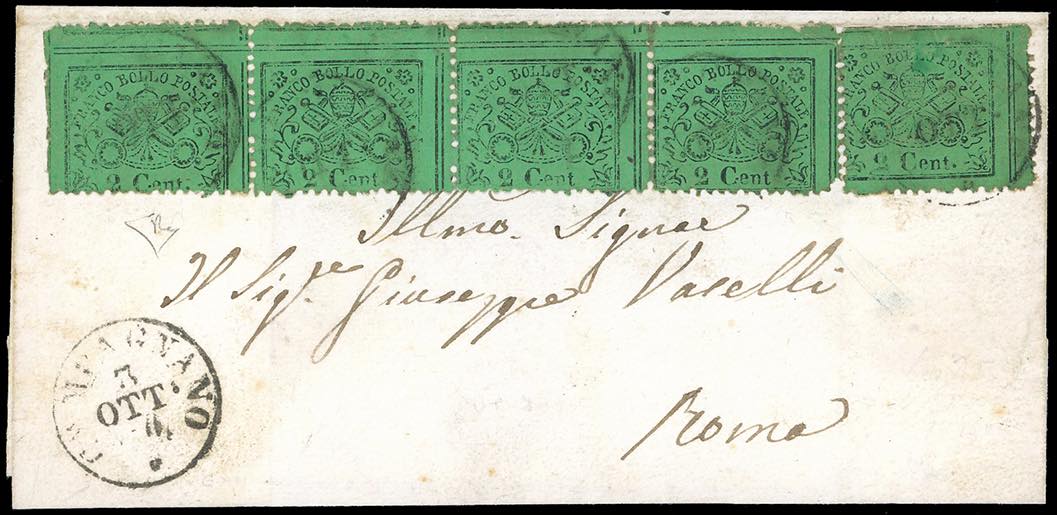 FRANCO BOLLO POSTALE FRANCO BOLLO POSTALE FRANCO BOLLO POSTALE FRANCO BOLLO POSTALE FRANCO BOLLO POSTALE
2 Cent. 2 Cent 2 Cent. 2 Cent 2 Cent.
Illmo. Signor
Il Sigre. Giuseppe Vaselli
CAMPAGNANO
3
OTT.
Roma